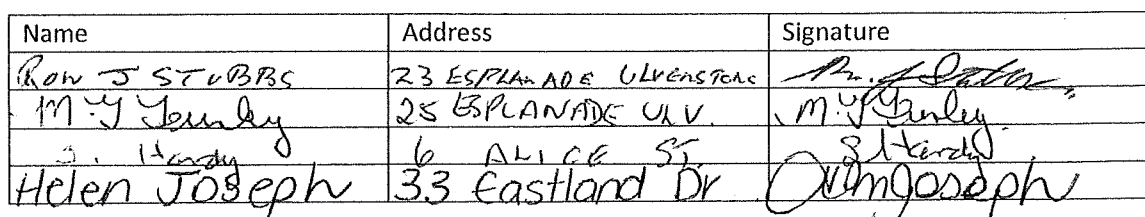 Name Address Signature
RON J STUBBS 23 ESPLANADE ULVERSTONE
M. J 25 ESPLANADE ULV. M. J
J. Hardy 6 ALICE ST. S Hardy
Helen Joseph 33 Eastland Dr Joseph